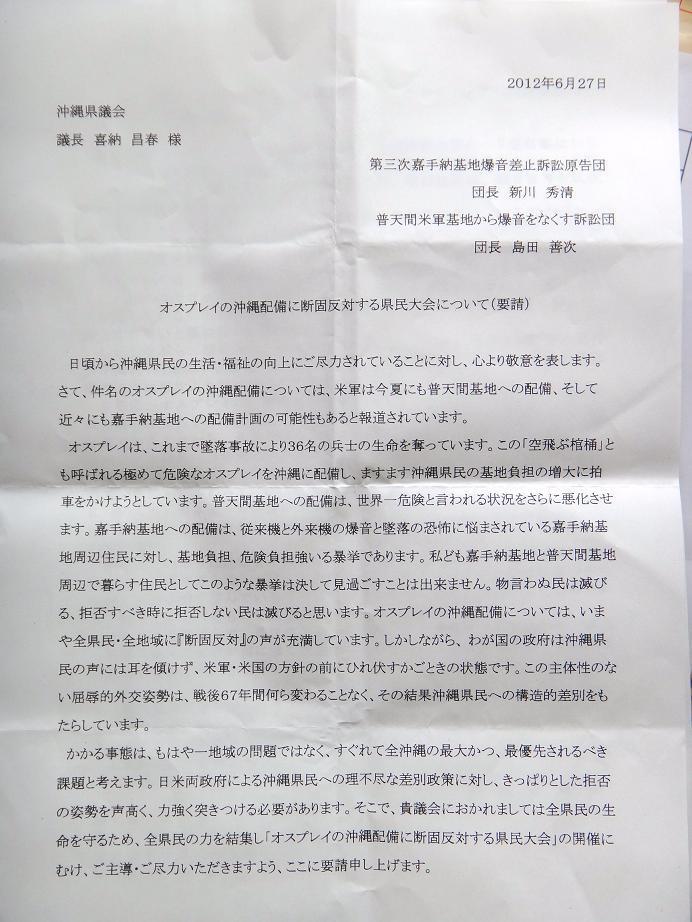 2012年6月27日
沖縄県議会
議長 喜納 昌春 様
第三次嘉手納基地爆音差止訴訟原告団
団長 新川 秀清
普天間米軍基地から爆音をなくす訴訟団
団長 島田 善次
オスプレイの沖縄配備に断固反対する県民大会について(要請)
日頃から沖縄県民の生活・福祉の向上にご尽力されていることに対し、心より敬意を表します。
さて、件名のオスプレイの沖縄配備については、米軍は今夏にも普天間基地への配備、そして
近々にも嘉手納基地への配備計画の可能性もあると報道されています。
オスプレイは、これまで墜落事故により36名の兵士の生命を奪っています。この「空飛ぶ棺桶」と
も呼ばれる極めて危険なオスプレイを沖縄に配備し、ますます沖縄県民の基地負担の増大に拍
車をかけようとしています。普天間基地への配備は、世界一危険と言われる状況をさらに悪化させ
ます。嘉手納基地への配備は、従来機と外来機の爆音と墜落の恐怖に悩まされている嘉手納基
地周辺住民に対し、基地負担、危険負担強いる暴挙であります。私ども嘉手納基地と普天間基地
周辺で暮らす住民としてこのような暴挙は決して見過ごすことは出来ません。物言わぬ民は滅び
る、拒否すべき時に拒否しない民は滅びると思います。オスプレイの沖縄配備については、いま
や全県民・全地域に『断固反対』の声が充満しています。しかしながら、わが国の政府は沖縄県
民の声には耳を傾けず、米軍・米国の方針の前にひれ伏すかごときの状態です。この主体性のな
い屈辱的外交姿勢は、戦後67年間何ら変わることなく、その結果沖縄県民への構造的差別をも
たらしています。
かかる事態は、もはや一地域の問題ではなく、すぐれて全沖縄の最大かつ、最優先されるべき
課題と考えます。日米両政府による沖縄県民への理不尽な差別政策に対し、きっぱりとした拒否
の姿勢を声高く、力強く突きつける必要があります。そこで、貴議会におかれましては全県民の生
命を守るため、全県民の力を結集し「オスプレイの沖縄配備に断固反対する県民大会」の開催に
むけ、ご主導・ご尽力いただきますよう、ここに要請申し上げます。